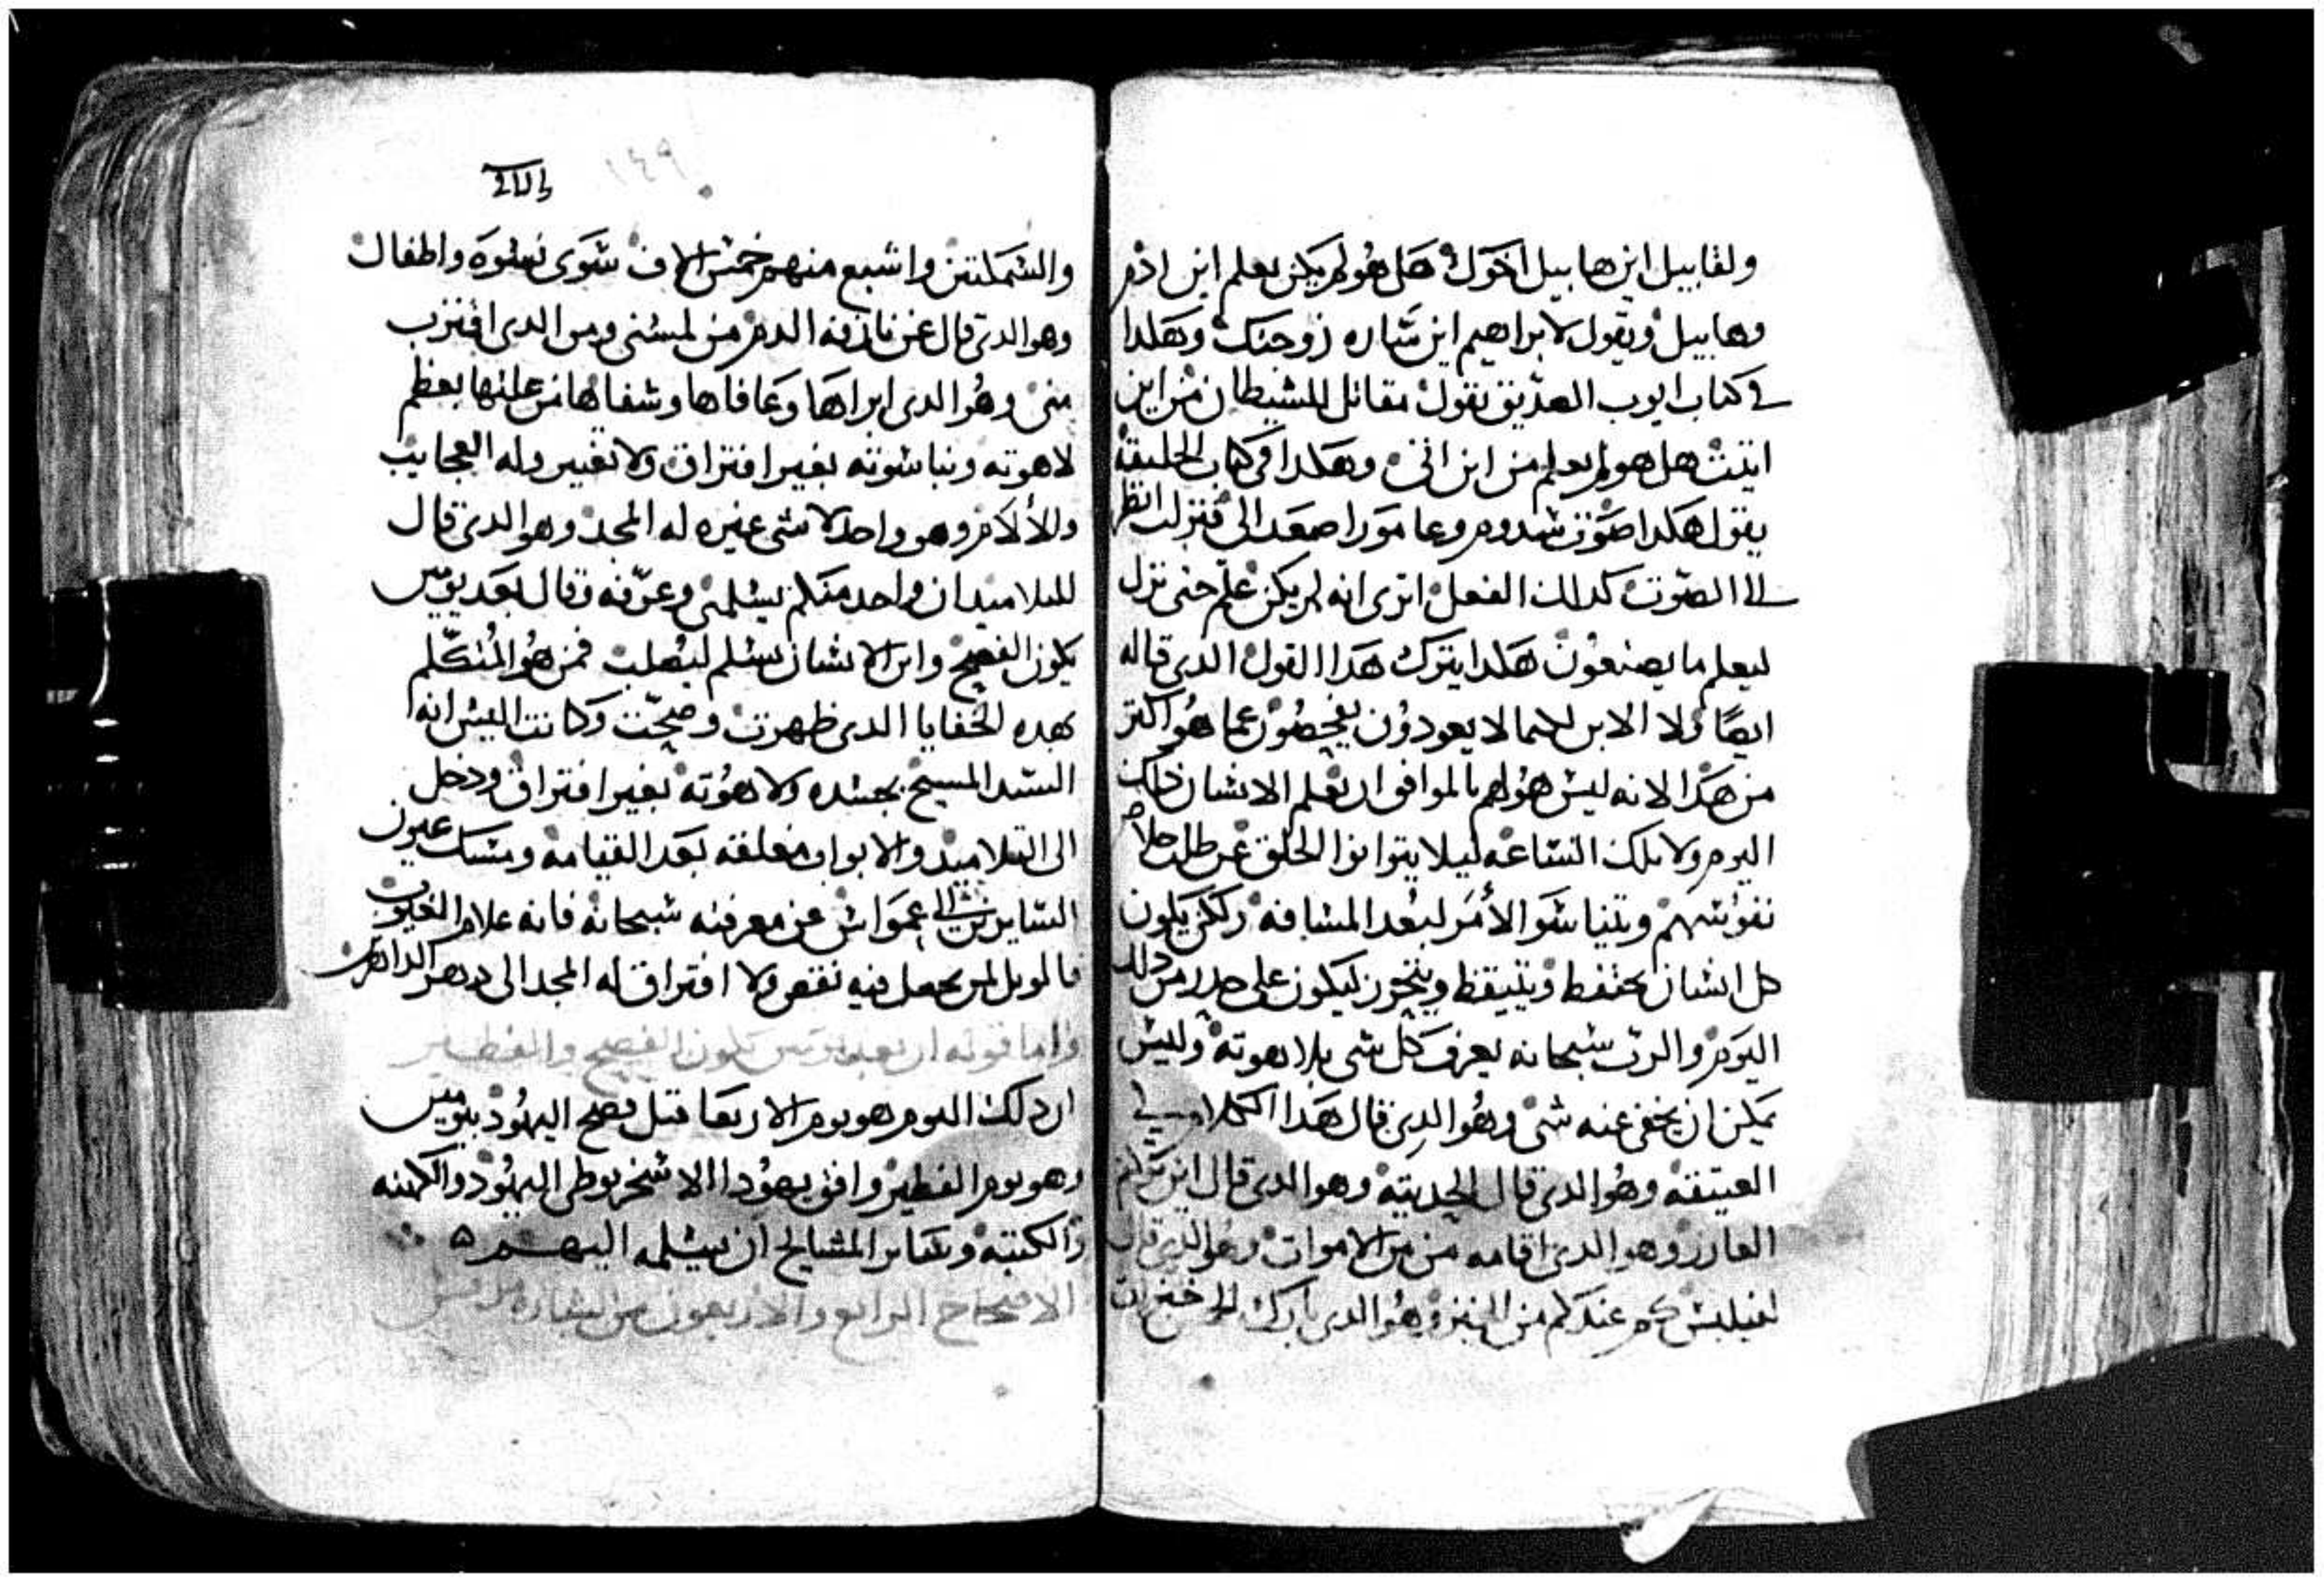 ولقابيل اين هابيل اخوك هل هو لم يكن يعلم اين ادم
وهابيل ويقول لابراهيم اين ساره زوجتك وهكدا
في كتاب ايوب الصديق نقول مقاتل للشيطان من اين
اتيت هل هو لم يعلم من اين اتى وهكدا في كتاب الخليقة
يقول هكدا صوت سدوم وعامورا صعد الى فنزلت انظر
الى الصوت كدلك الفعل اترى انه لم يكن علم حتى نزل
ليعلم ما يصنعون هكدا يترك هدا القول الدى قاله
ايضا ولا الابن لكيما لا يعودون يفحصون عما هو اكتر
من هدا لانه ليس هو لهم بالموافق ان يعلم الانسان دلك
اليوم ولا تلك الساعه ليلا يتوانوا الخلق عن طلب خلاص
نفوسهم ويتناسوا الأمر لبعد المسافه ولكن يكون
كل انسان يحتفظ ويتيقظ ويتحرز ليكون على حدر من دلك
اليوم والرب سبحانه يعرف كل شى بلاهوته وليس
يمكن ان يخفى عنه شى وهو الدى قال هدا الكلام في
العتيقه وهو الدى قال الحديته وهو الدى قال اين تركتم
العازر وهو الدى اقامه من بين الاموات وهو الدى قال
لفيلبس كم عندكم من الخبز وهو الدى بارك الخمس خبزات
١٤٩
والسمكتين واشبع منهم خمس الاف سوى نسوه واطفال
وهو الدى قال عن نازفة الدم من لمسنى ومن الدى اقترب
منى وهو الدى ابراها وعافاها وشفاها من علتها بعظم
لاهوته وناسوته بغير افتراق ولا تغيير وله العجايب
والألام وهو واحد لا شى غيره له المجد وهو الدى قال
للتلاميد ان واحد منكم يسلمنى وعرفه وقال بعد يومين
يكون الفصح وابن الانسان يسلم ليصلب فمن هو المتكلم
بهده الخفايا الدى ظهرت وصحت وكانت اليس انه
السيد المسيح بجسده ولاهوته بغير افتراق ودخل
الى التلاميد والابواب مغلقه بعد القيامه ومسك عيون
السايرين الى عمواس عن معرفته سبحانه فانه علام الغيوب
فالويل لمن يجعل فيه نقص ولا افتراق له المجد الى دهر الداهرين
واما قوله ان بعد يومين يكون الفصح والفطير
ان دلك اليوم هو يوم الاربعا قبل فصح اليهود بيومين
وهو يوم الفطير وافق يهودا الاسخريوطى اليهود والكهنه
والكتبه وساير المشايخ ان يسلمه اليهم
الاصحاح الرابع والاربعون من بشارة مرقس